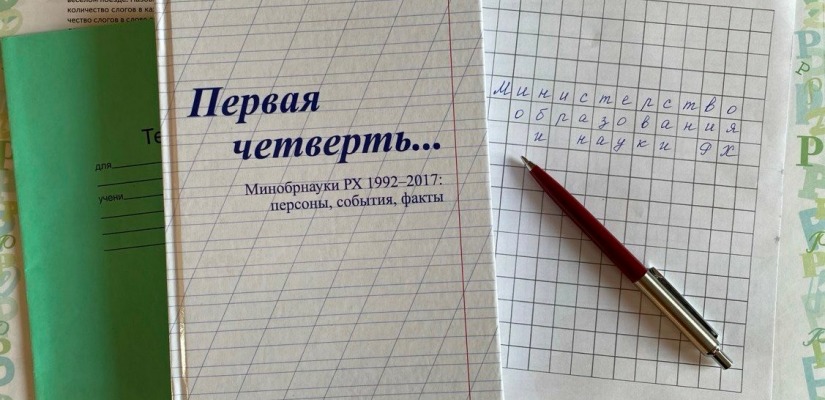 количество слогов в ка
чество слогов в слове
Те
для
учени
Первая
четверть...
Минобрнауки РХ 1992–2017:
персоны, события, факты
Министерство
образования
и науки РХ